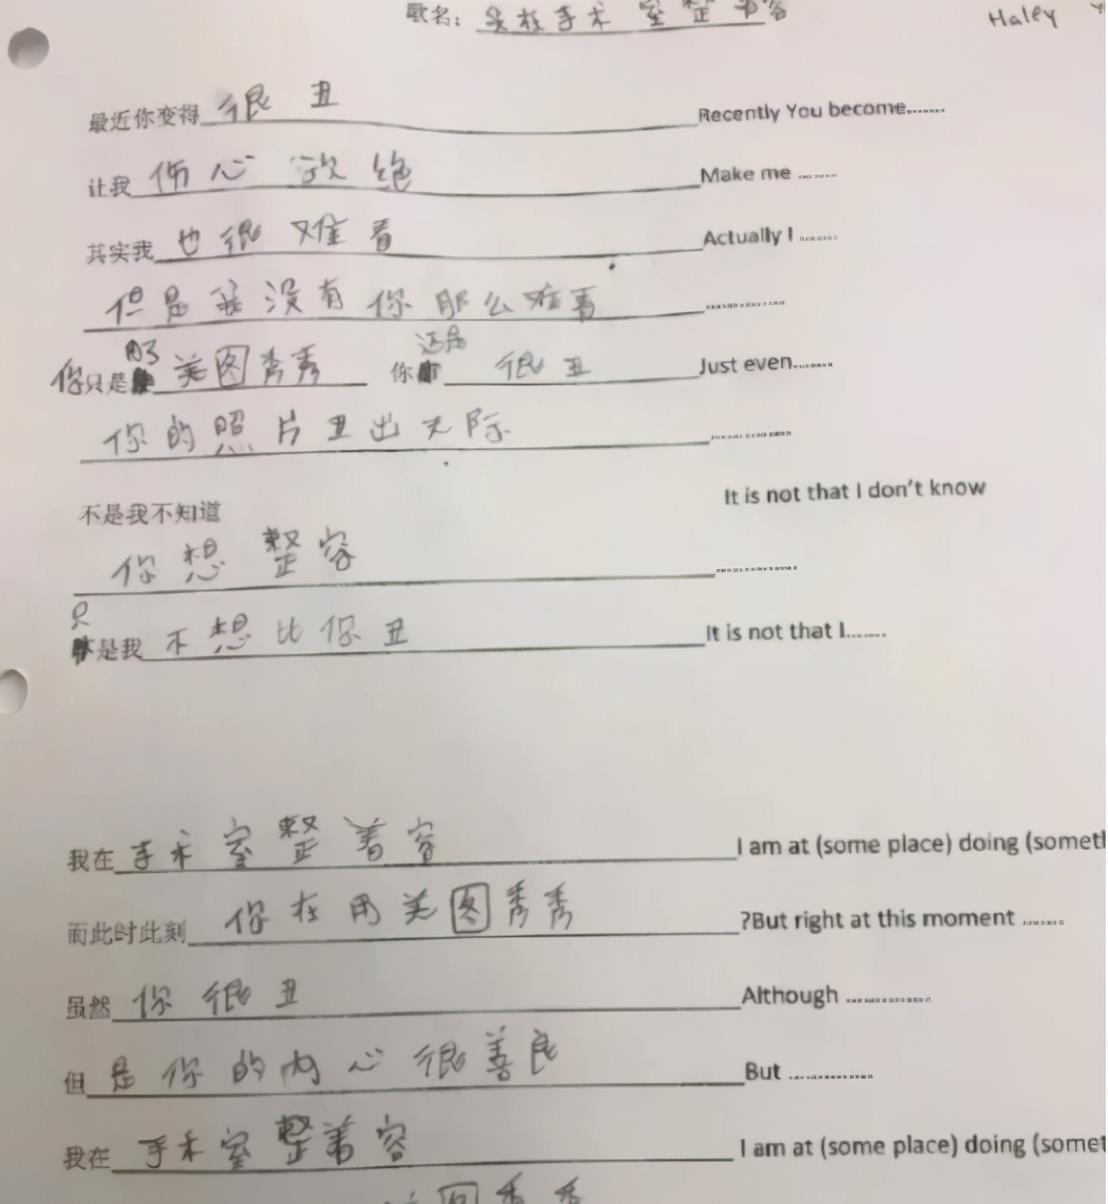 歌名: 我在手术室整容
Haley
最近你变得 很丑 Recently You become........
让我 伤心欲绝 Make me ........
其实我 也很难看 Actually I ........
但是我没有你那么难看 ........
你只是用了美图秀秀 你还是很丑 Just even........
你的照片丑出天际 ........
不是我不知道 It is not that I don't know
你想整容 ........
只是我 不想比你丑 It is not that I........
我在手术室整着容 I am at (some place) doing (somet
而此时此刻 你在用美图秀秀 ?But right at this moment ........
虽然 你很丑 Although ........
但是你的内心很善良 But ........
我在 手术室整着容 I am at (some place) doing (somet
图秀秀